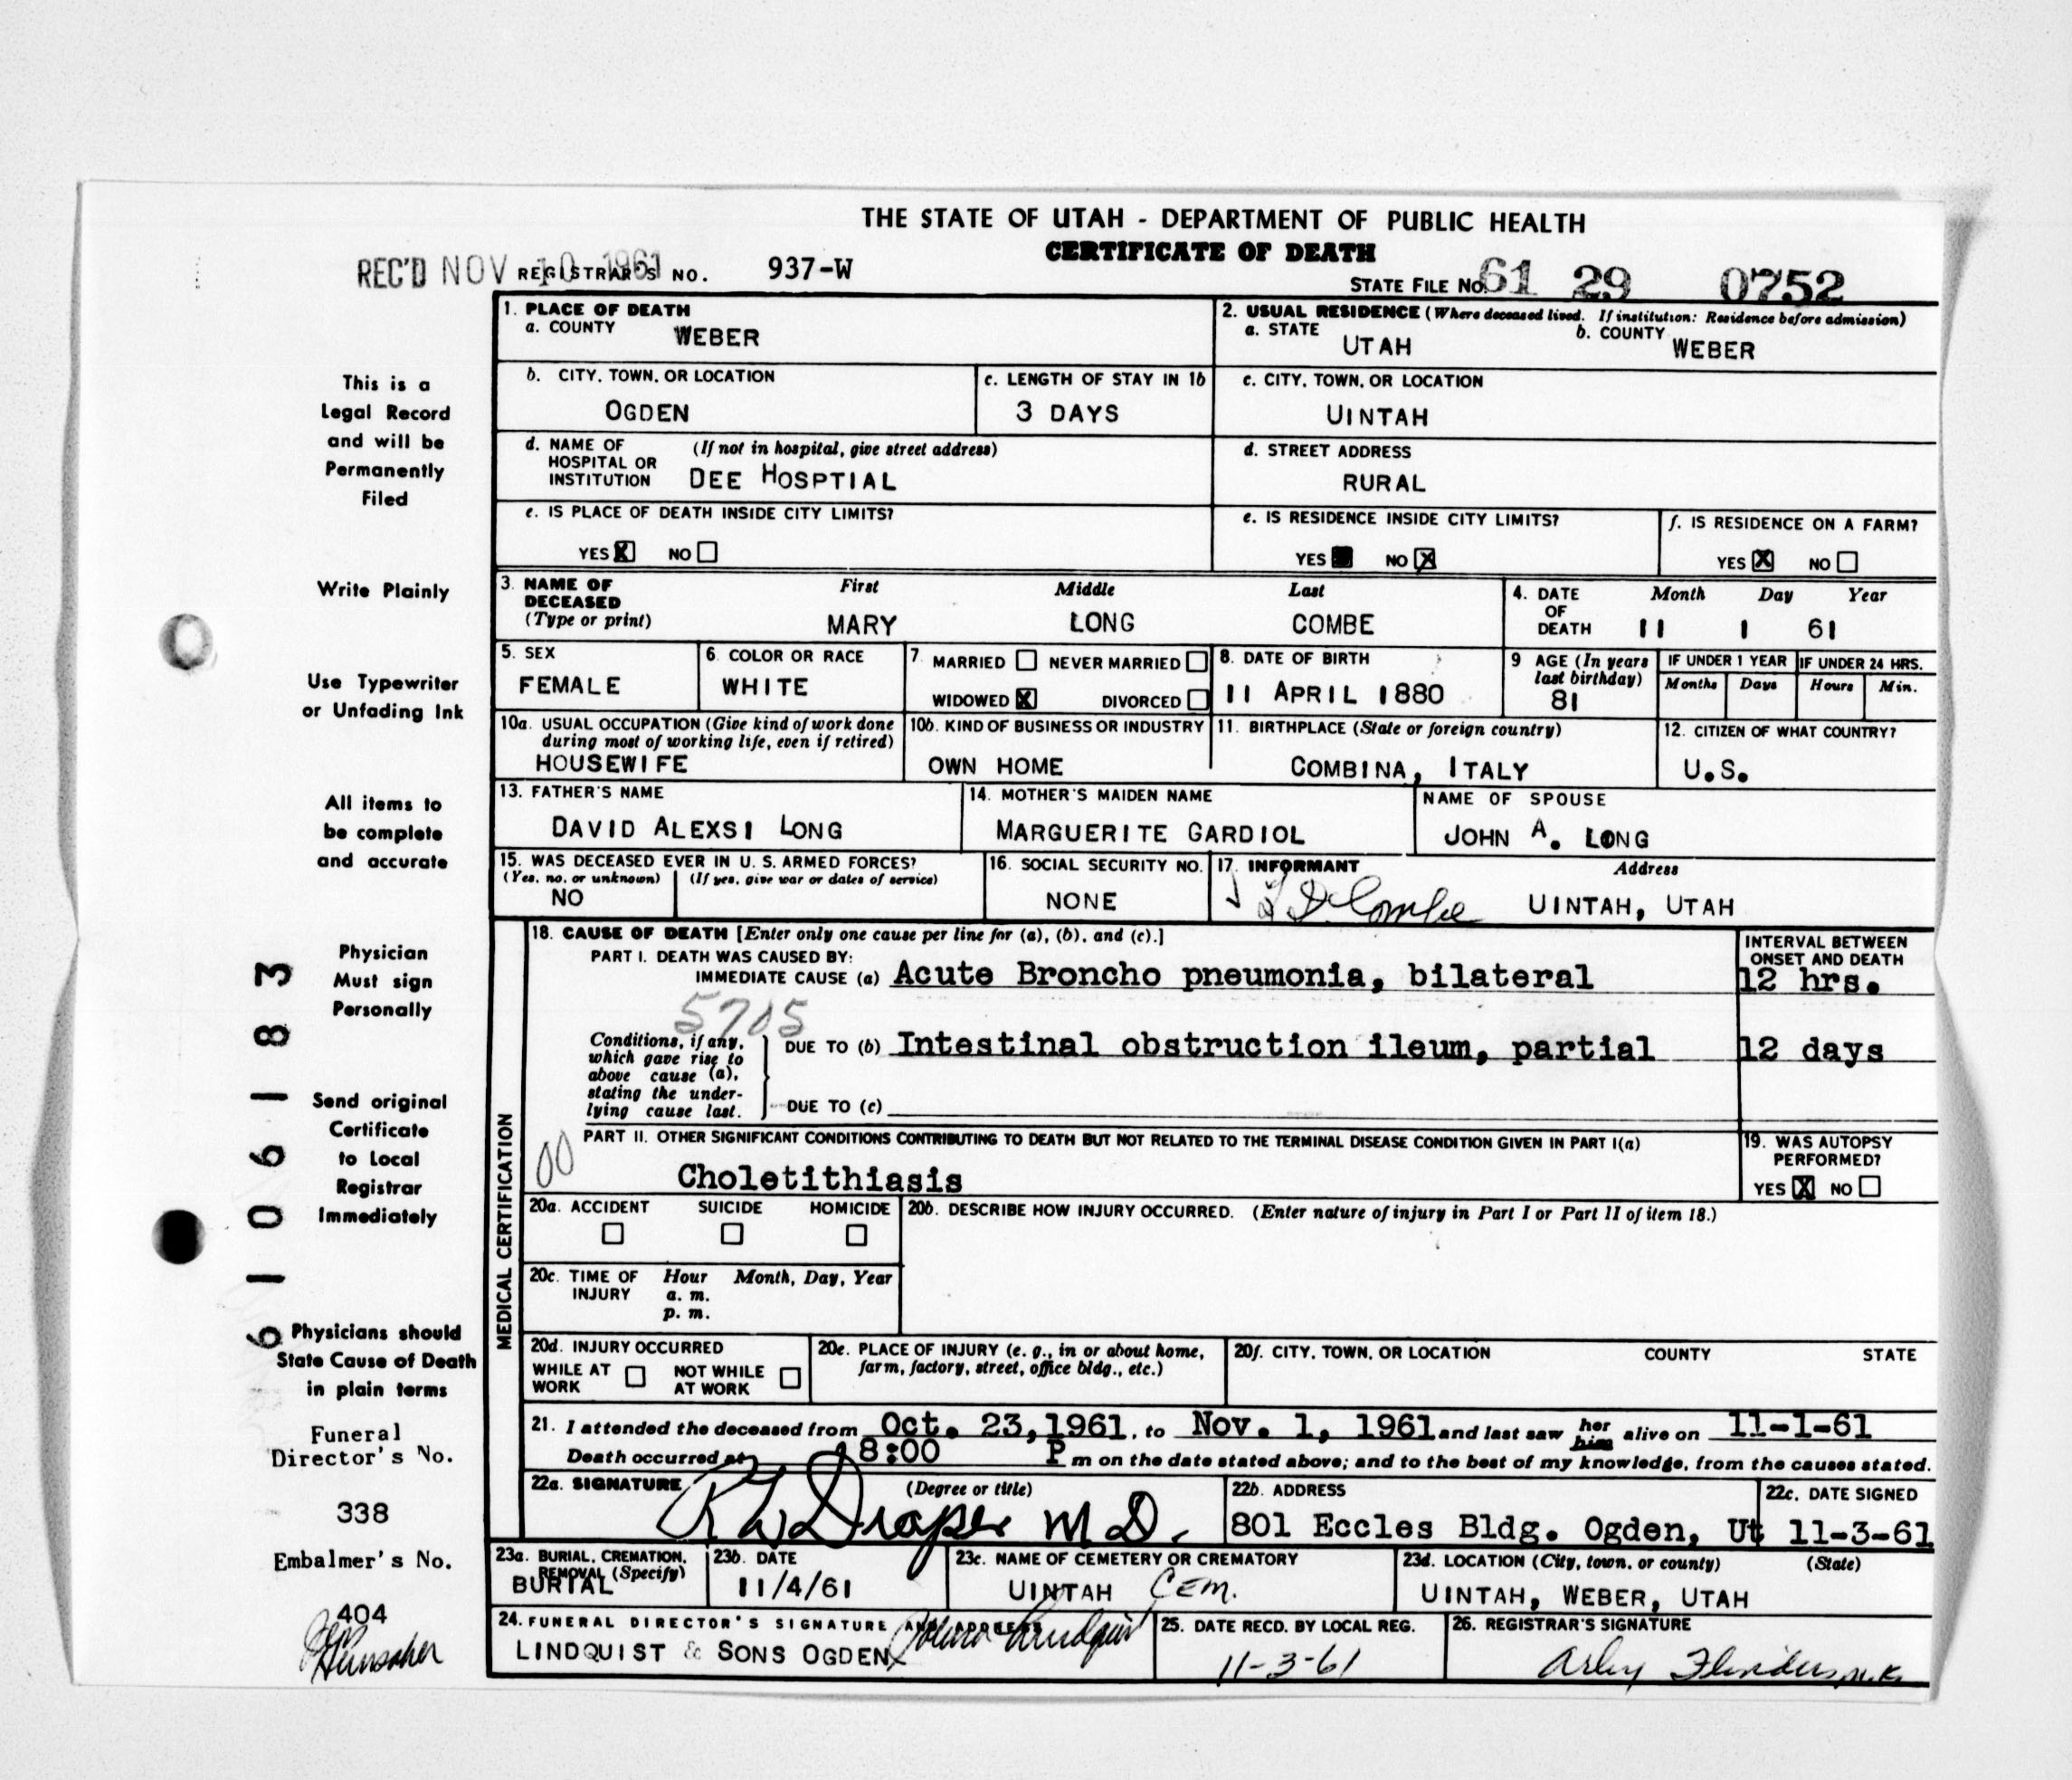 THE STATE OF UTAH - DEPARTMENT OF PUBLIC HEALTH
CERTIFICATE OF DEATH
REC'D NOV 10 1961 REGISTRAR'S NO. 937-W
STATE FILE NO. 61 29 0752
1. PLACE OF DEATH
a. COUNTY WEBER
2. USUAL RESIDENCE (Where deceased lived. If institution: Residence before admission)
a. STATE UTAH b. COUNTY WEBER
b. CITY, TOWN, OR LOCATION OGDEN
c. LENGTH OF STAY IN 1b 3 DAYS
c. CITY, TOWN, OR LOCATION UINTAH
d. NAME OF HOSPITAL OR INSTITUTION (If not in hospital, give street address) DEE HOSPTIAL
d. STREET ADDRESS RURAL
e. IS PLACE OF DEATH INSIDE CITY LIMITS? YES X NO
e. IS RESIDENCE INSIDE CITY LIMITS? YES NO X
f. IS RESIDENCE ON A FARM? YES X NO
3. NAME OF DECEASED (Type or print) First Middle Last
MARY LONG COMBE
4. DATE OF DEATH Month Day Year
11 1 61
5. SEX FEMALE
6. COLOR OR RACE WHITE
7. MARRIED NEVER MARRIED
WIDOWED X DIVORCED
8. DATE OF BIRTH 11 APRIL 1880
9 AGE (In years last birthday) 81
IF UNDER 1 YEAR Months Days
IF UNDER 24 HRS. Hours Min.
10a. USUAL OCCUPATION (Give kind of work done during most of working life, even if retired) HOUSEWIFE
10b. KIND OF BUSINESS OR INDUSTRY OWN HOME
11. BIRTHPLACE (State or foreign country) COMBINA, ITALY
12. CITIZEN OF WHAT COUNTRY? U.S.
13. FATHER'S NAME DAVID ALEXSI LONG
14. MOTHER'S MAIDEN NAME MARGUERITE GARDIOL
NAME OF SPOUSE JOHN A. LONG
15. WAS DECEASED EVER IN U. S. ARMED FORCES?
(Yes, no, or unknown) (If yes, give war or dates of service)
NO
16. SOCIAL SECURITY NO. NONE
17. INFORMANT Address
Combe UINTAH, UTAH
MEDICAL CERTIFICATION
18. CAUSE OF DEATH [Enter only one cause per line for (a), (b), and (c).]
PART I. DEATH WAS CAUSED BY:
IMMEDIATE CAUSE (a) Acute Broncho pneumonia, bilateral
INTERVAL BETWEEN ONSET AND DEATH
12 hrs.
5705
Conditions, if any, which gave rise to above cause (a), stating the underlying cause last.
DUE TO (b) Intestinal obstruction ileum, partial 12 days
DUE TO (c)
PART II. OTHER SIGNIFICANT CONDITIONS CONTRIBUTING TO DEATH BUT NOT RELATED TO THE TERMINAL DISEASE CONDITION GIVEN IN PART I(a)
00
Choletithiasis
19. WAS AUTOPSY PERFORMED?
YES X NO
20a. ACCIDENT SUICIDE HOMICIDE
20b. DESCRIBE HOW INJURY OCCURRED. (Enter nature of injury in Part I or Part II of item 18.)
20c. TIME OF INJURY Hour Month, Day, Year
a. m.
p. m.
20d. INJURY OCCURRED
WHILE AT WORK NOT WHILE AT WORK
20e. PLACE OF INJURY (e. g., in or about home, farm, factory, street, office bldg., etc.)
20f. CITY, TOWN, OR LOCATION COUNTY STATE
21. I attended the deceased from Oct. 23, 1961, to Nov. 1, 1961 and last saw her him alive on 11-1-61
Death occurred at 8:00 P m on the date stated above; and to the best of my knowledge, from the causes stated.
22a. SIGNATURE (Degree or title)
Draper M D.
22b. ADDRESS 801 Eccles Bldg. Ogden, Ut
22c. DATE SIGNED 11-3-61
23a. BURIAL, CREMATION, REMOVAL (Specify) BURIAL
23b. DATE 11/4/61
23c. NAME OF CEMETERY OR CREMATORY UINTAH CEM.
23d. LOCATION (City, town, or county) (State)
UINTAH, WEBER, UTAH
24. FUNERAL DIRECTOR'S SIGNATURE AND ADDRESS
LINDQUIST & SONS OGDEN Lindquist
25. DATE RECD. BY LOCAL REG. 11-3-61
26. REGISTRAR'S SIGNATURE
This is a
Legal Record
and will be
Permanently
Filed
Write Plainly
Use Typewriter
or Unfading Ink
All items to
be complete
and accurate
Physician
Must sign
Personally
Send original
Certificate
to Local
Registrar
Immediately
Physicians should
State Cause of Death
in plain terms
Funeral
Director's No.
338
Embalmer's No.
404
6 1 0 6 1 8 3